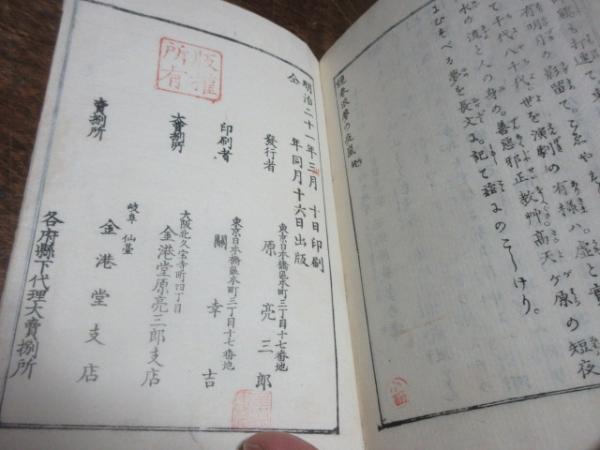 有明月の影留て。こゑや
て千代八千代。世を演劇の有様ハ。虚と實
水の流と人の身の。善悪邪正教艸。高天ヶ原の短夜
にむすべる夢を長文に。記て鑑にのこしけり。
版權所有
明治二十一年三月十日印刷
仝年同月十六日出版
發行者
東京日本橋區本町三丁目十七番地
原亮三郎
印刷者
東京日本橋區本町三丁目十七番地
關幸吉
大賣捌所
大阪北久宝寺町四丁目
金港堂原亮三郎支店
賣捌所
岐阜
仙臺
金港堂支店
各府縣下代理大賣捌所